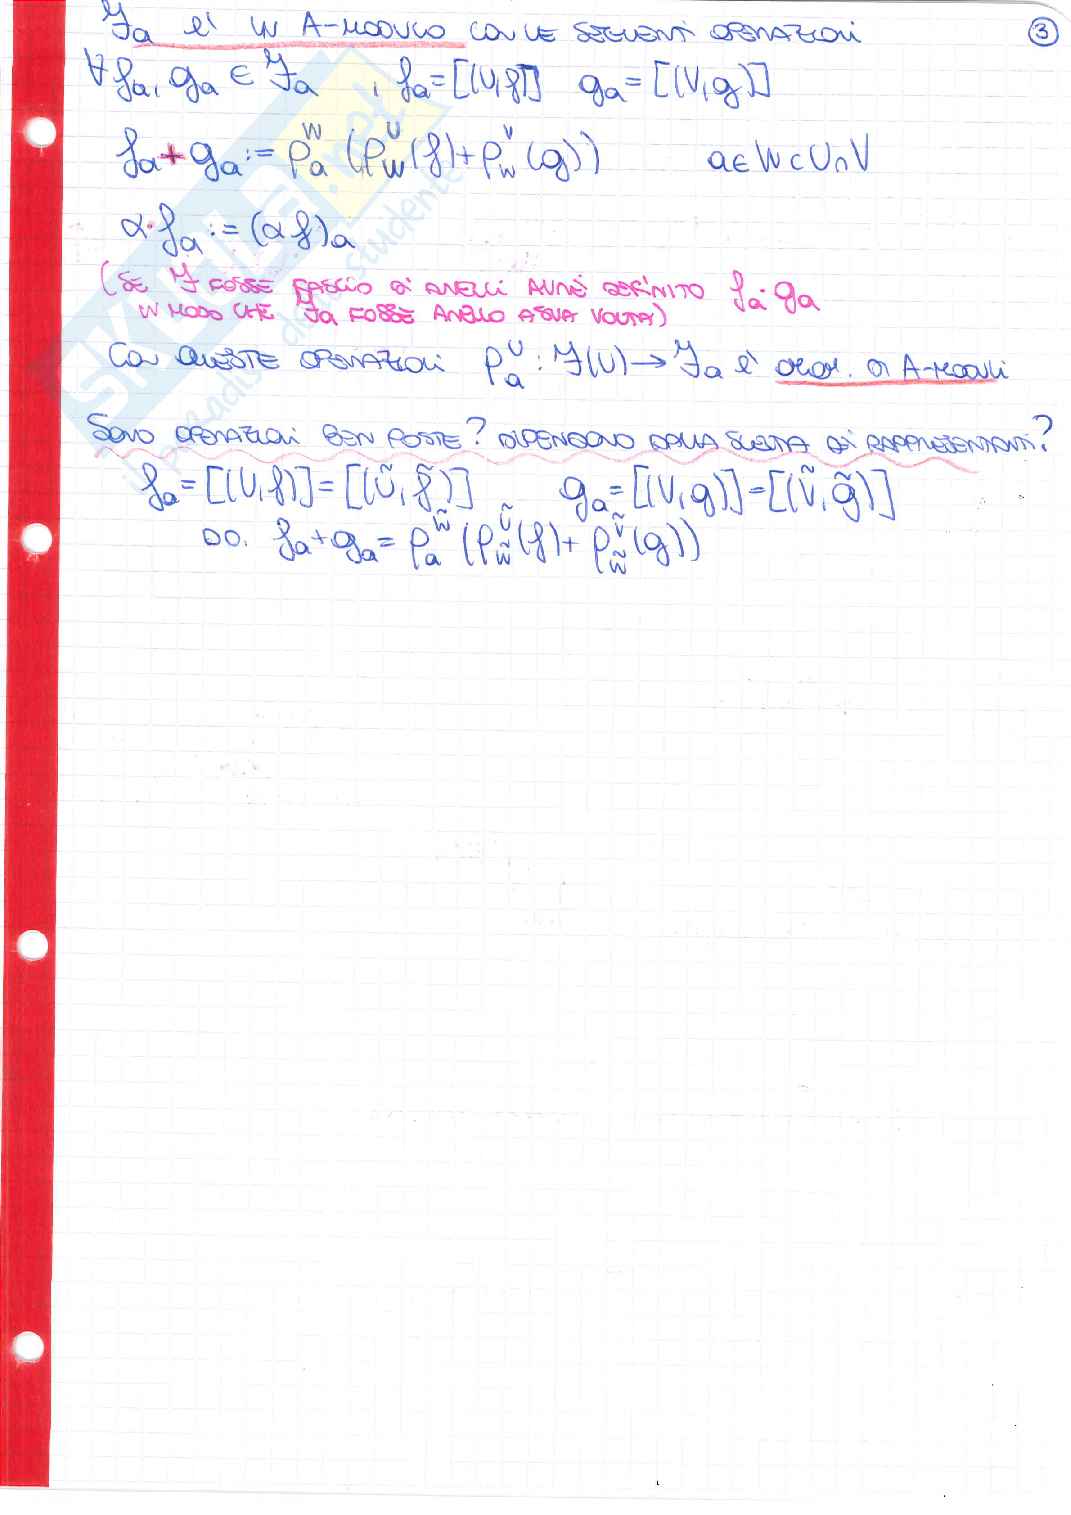 ℱa è un A-MODULO CON LE SEGUENTI OPERAZIONI ③
∀ fa, ga ∈ ℱa , fa = [(U,f)] ga = [(V,g)]
fa + ga := ρ^W_a (ρ^U_W(f) + ρ^V_W(g)) a ∈ W ⊂ U ∩ V
α · fa := (α f)a
(SE ℱ FOSSE FASCIO DI ANELLI AVREI DEFINITO fa · ga
IN MODO CHE ℱa FOSSE ANELLO A SUA VOLTA)
CON QUESTE OPERAZIONI ρ^U_a : ℱ(U) → ℱa è OMOM. DI A-MODULI
SONO OPERAZIONI BEN POSTE? DIPENDONO DALLA SCELTA DI RAPPRESENTANTI?
fa = [(U,f)] = [(Ũ,f̃)] ga = [(V,g)] = [(Ṽ,g̃)]
DO. fa + ga = ρ^W̃_a (ρ^Ũ_W̃(f) + ρ^Ṽ_W̃(g))
SKUOLA.net
il paradiso dello studente